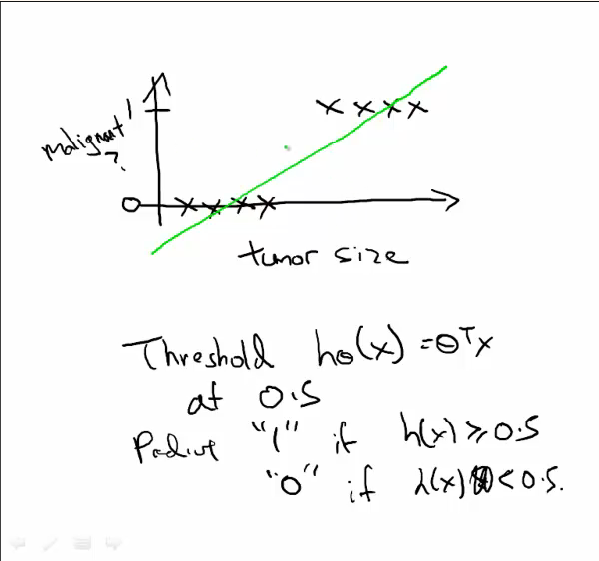 1
malignant
?
0
tumor size
Threshold hθ(x) = θᵀx
at 0.5
Predict "1" if h(x) ≥ 0.5
"0" if h(x) < 0.5.